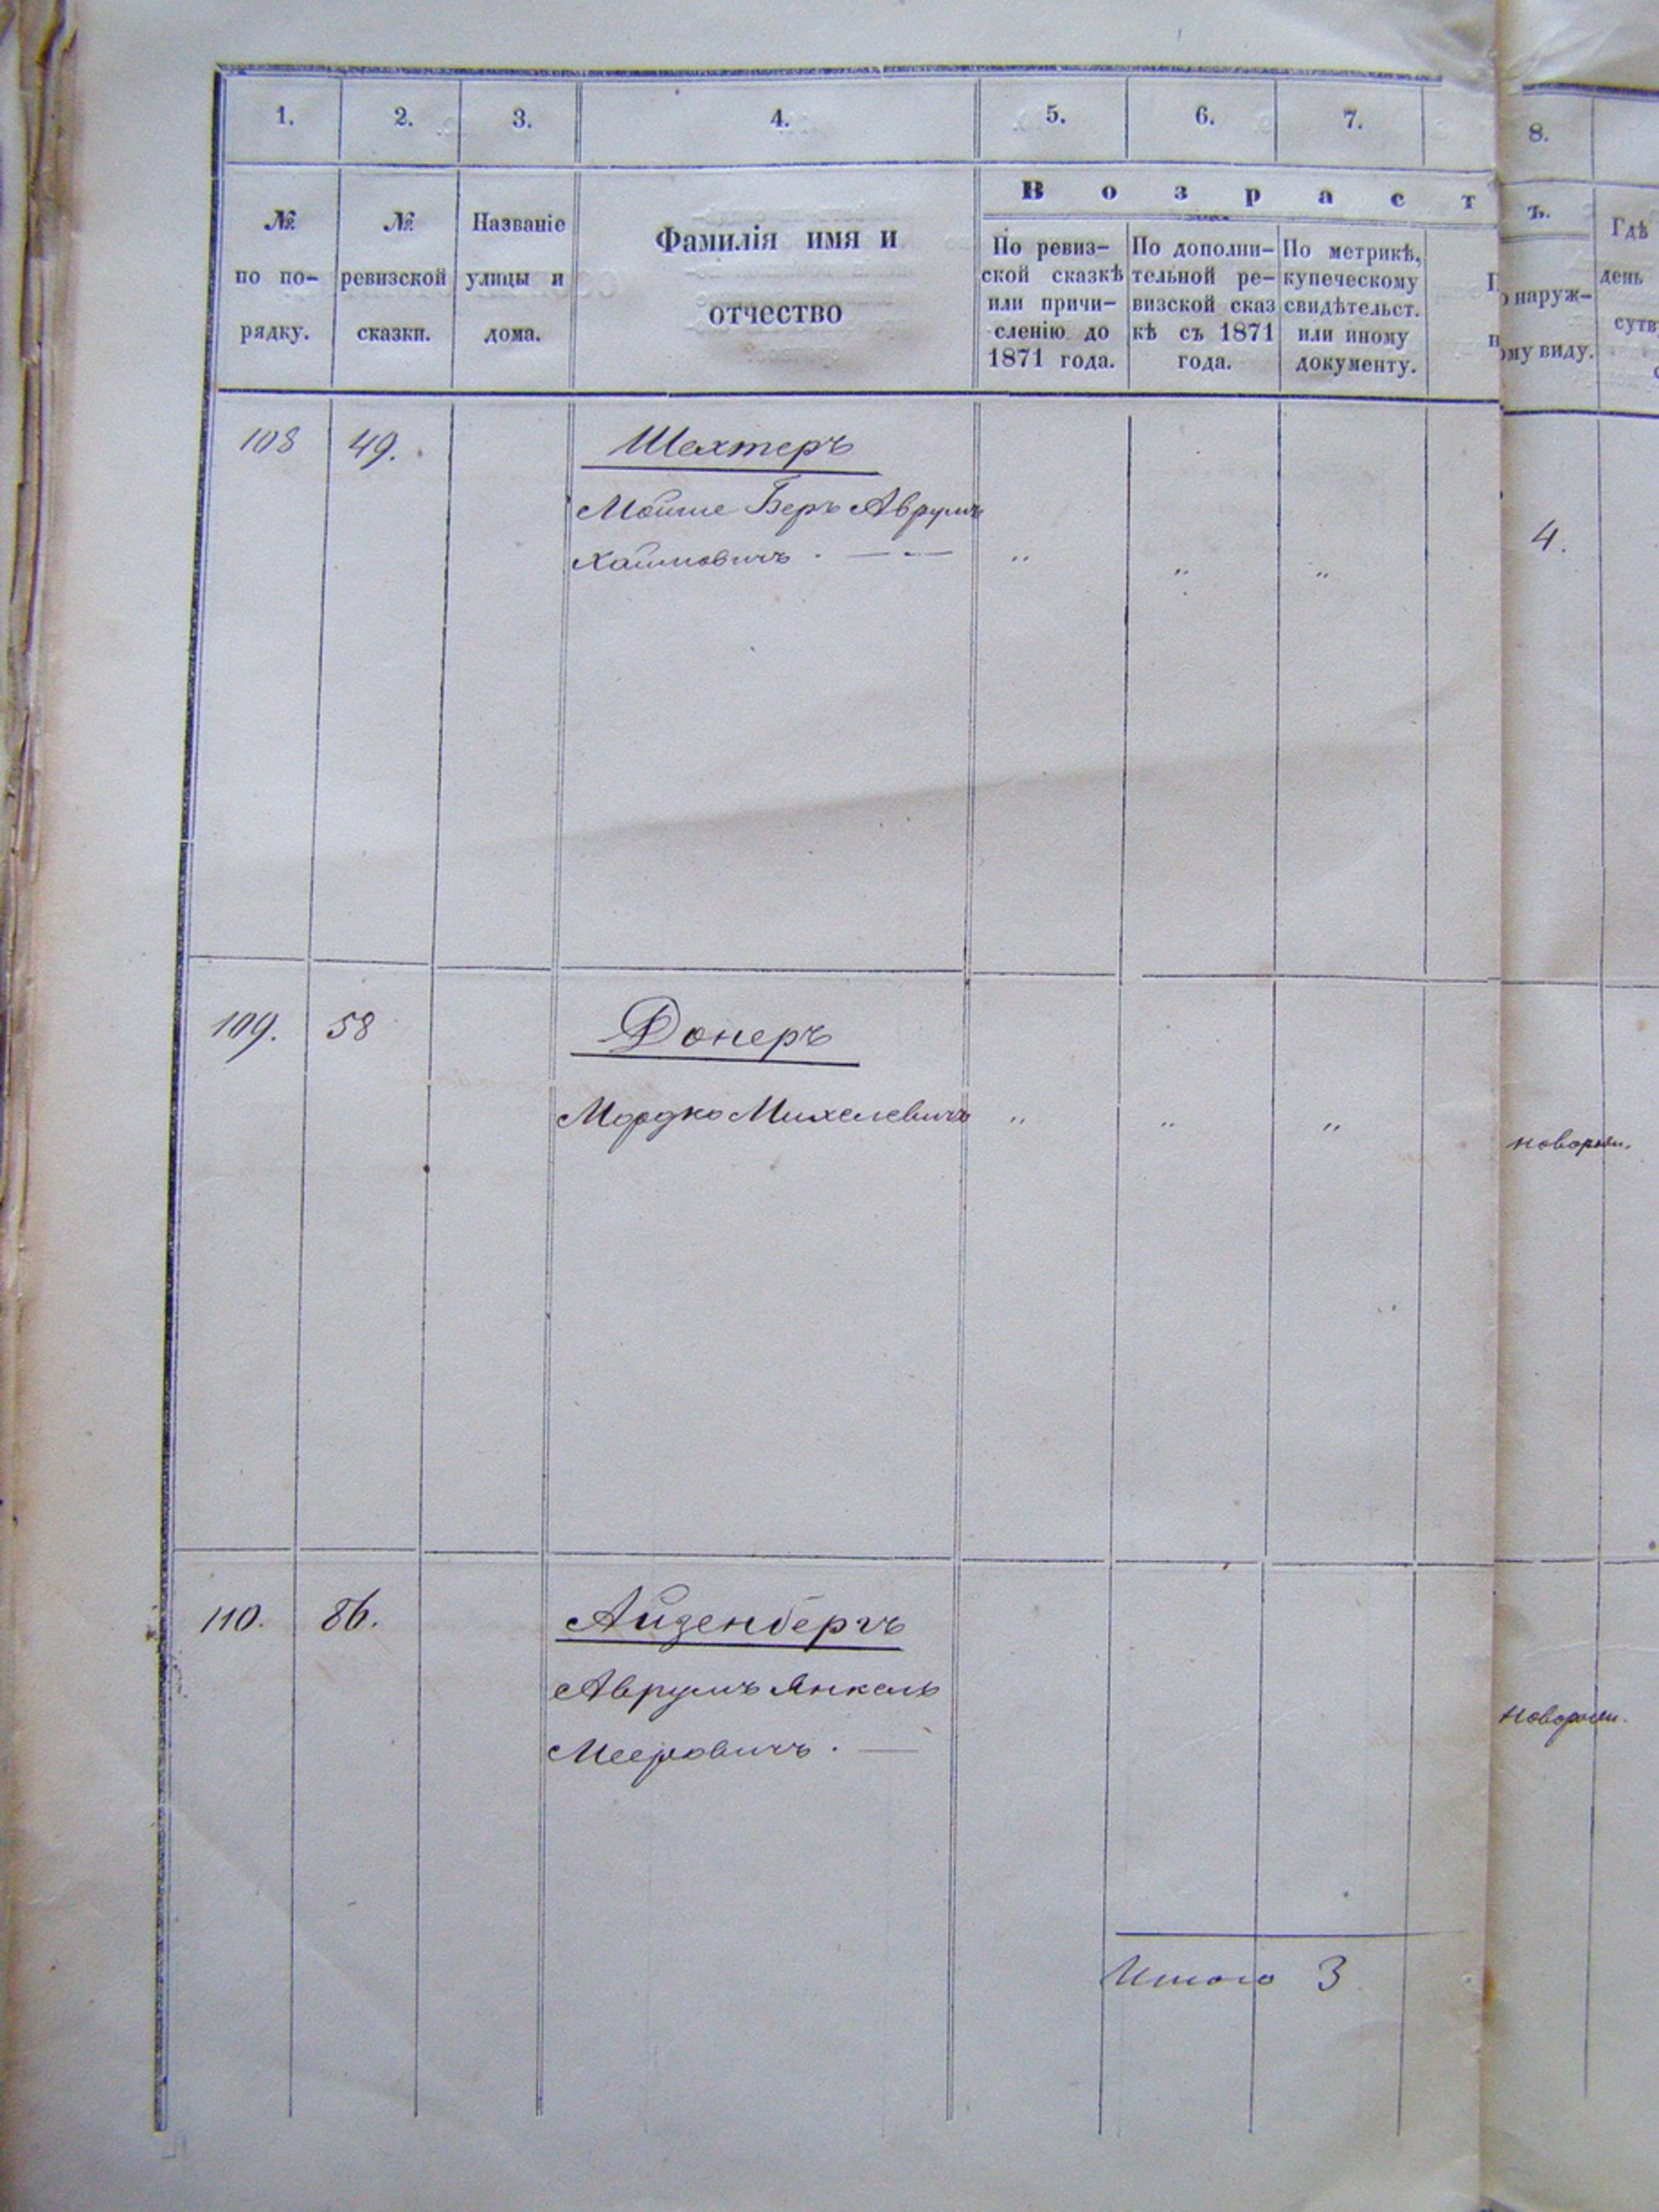 1. 2. 3. 4. 5. 6. 7. 8.
№ по по-рядку.
№ ревизской сказки.
Названіе улицы и дома.
Фамилія имя и
отчество
В о з р а с т ъ.
По ревиз-
ской сказкѣ
или причи-
сленію до
1871 года.
По дополни-
тельной ре-
визской сказ
кѣ съ 1871
года.
По метрикѣ,
купеческому
свидѣтельст.
или иному
документу.
о наруж-
ому виду.
Гдѣ
день
сутв
108 49. Шехтеръ
Мойше Беръ Аврумъ
Хаимовичъ . — — „ „ „ 4.
109. 58 Донеръ
Мордко Михелевичъ „ „ „ новорож.
110. 86. Айзенбергъ
Аврумъ Янкель
Мееровичъ . — новорож.
Итого 3